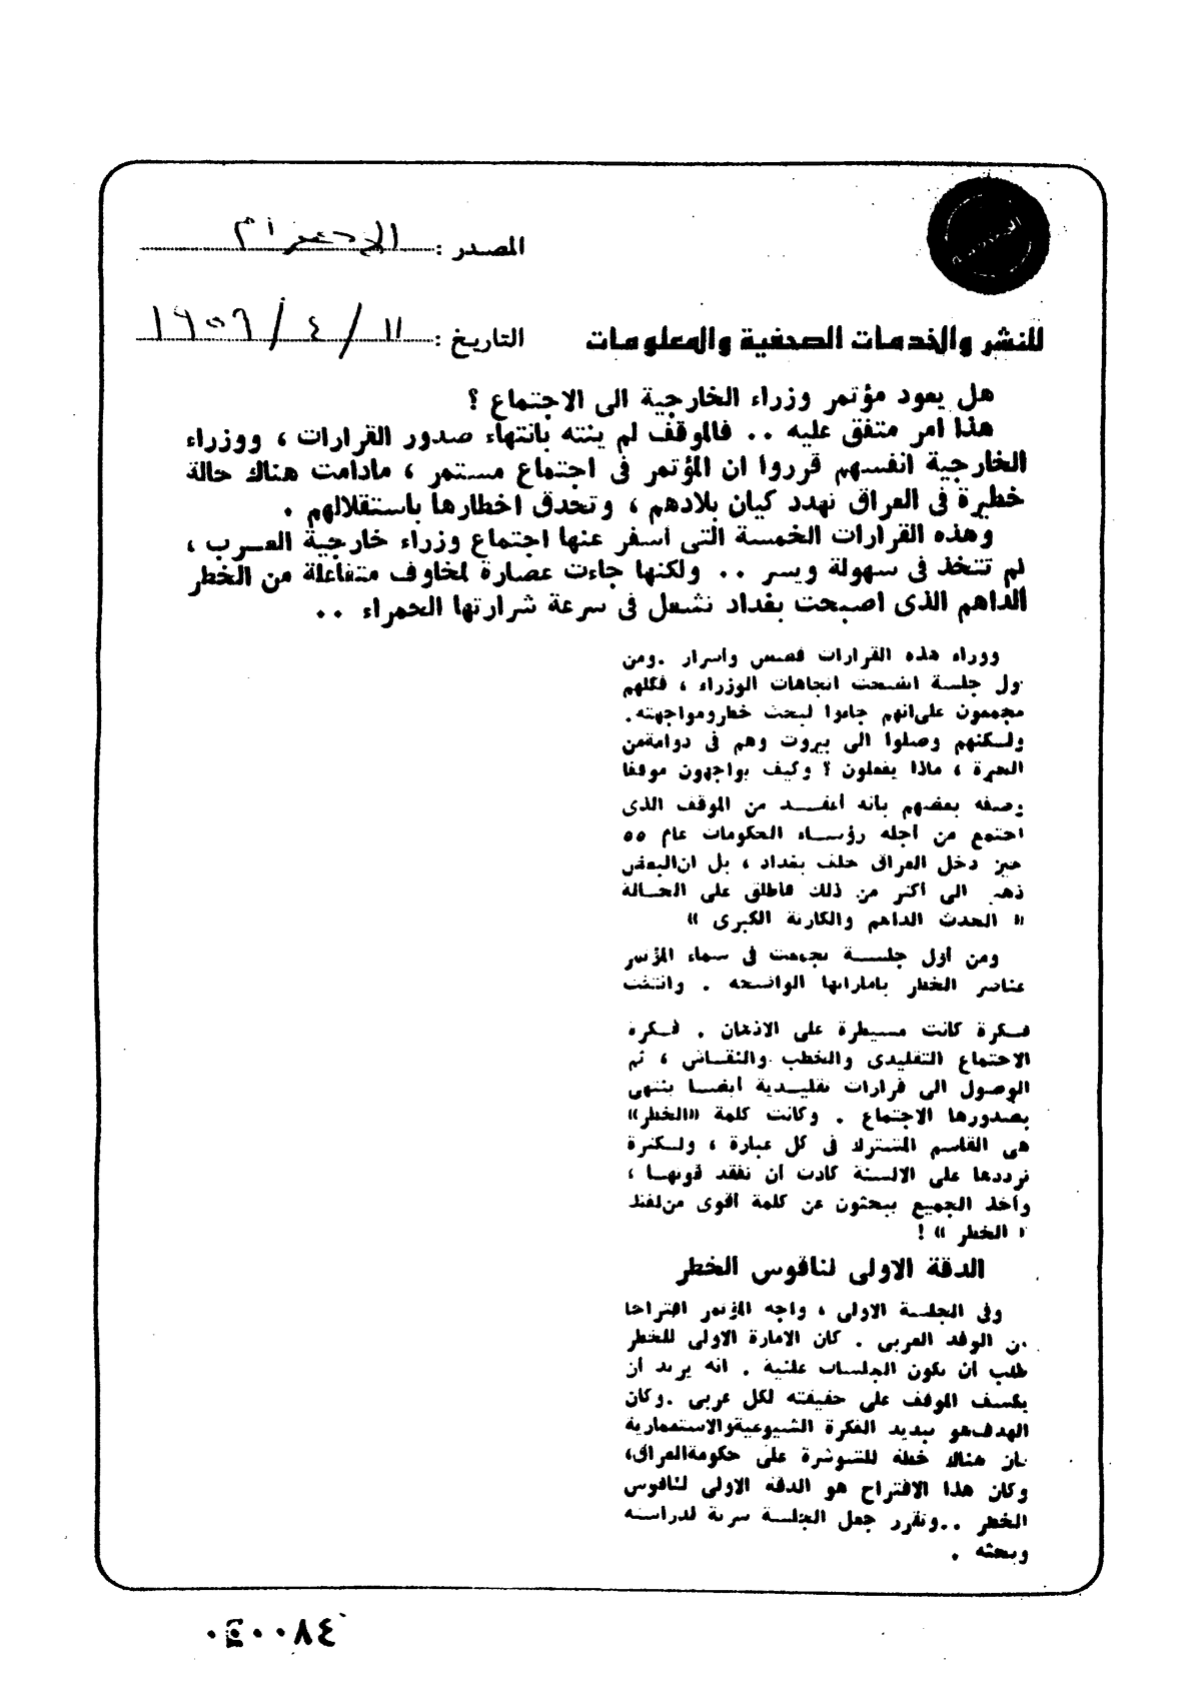 المصدر : الاهرام
للنشر والخدمات الصحفية والمعلومات
التاريخ : ١١ / ٤ / ١٩٥٩
هل يعود مؤتمر وزراء الخارجية الى الاجتماع ؟
هذا امر متفق عليه .. فالموقف لم ينته بانتهاء صدور القرارات ، ووزراء
الخارجية انفسهم قرروا ان المؤتمر فى اجتماع مستمر ، مادامت هناك حالة
خطيرة فى العراق تهدد كيان بلادهم ، وتحدق اخطارها باستقلالهم .
وهذه القرارات الخمسة التى اسفر عنها اجتماع وزراء خارجية العرب ،
لم تتخذ فى سهولة ويسر .. ولكنها جاءت عصارة لمخاوف متفاعلة من الخطر
الداهم الذى اصبحت بغداد تشعل فى سرعة شرارتها الحمراء ..
ووراء هذه القرارات قصص وأسرار . ومن
ول جلسة اتضحت اتجاهات الوزراء ، فكلهم
مجمعون على انهم جاءوا لبحث خطر ومواجهته .
ولكنهم وصلوا الى بيروت وهم فى دوامة من
الحيرة ، ماذا يفعلون ؟ وكيف يواجهون موقفا
وصفه بعضهم بأنه أعقد من الموقف الذى
اجتمع من أجله رؤساء الحكومات عام ٥٥
حين دخل العراق حلف بغداد ، بل ان البعض
ذهب الى أكثر من ذلك فأطلق على الحالة
« الحدث الداهم والكارثة الكبرى »
ومن أول جلسة تجمعت فى سماء المؤتمر
عناصر الخطر بأماراتها الواضحة . وانتفت
فكرة كانت مسيطرة على الاذهان . فكرة
الاجتماع التقليدى والخطب والنقاش ، ثم
الوصول الى قرارات تقليدية أيضا ينتهى
بصدورها الاجتماع . وكانت كلمة «الخطر»
هى القاسم المشترك فى كل عبارة ، ولكثرة
ترددها على الالسنة كادت أن تفقد قوتها ،
وأخذ الجميع يبحثون عن كلمة أقوى من لفظ
« الخطر » !
الدقة الاولى لناقوس الخطر
وفى الجلسة الاولى ، واجه المؤتمر اقتراحا
من الوفد العربى . كان الامارة الاولى للخطر
طلب أن تكون الجلسات علنية . انه يريد أن
يكشف الموقف على حقيقته لكل عربى . وكان
الهدف هو تبديد الفكرة الشيوعية والاستعمارية
بأن هناك خطة للشوشرة على حكومة العراق ،
وكان هذا الاقتراح هو الدقة الاولى لناقوس
الخطر .. وتقرر جعل الجلسة سرية لدراسته
وبحثه .